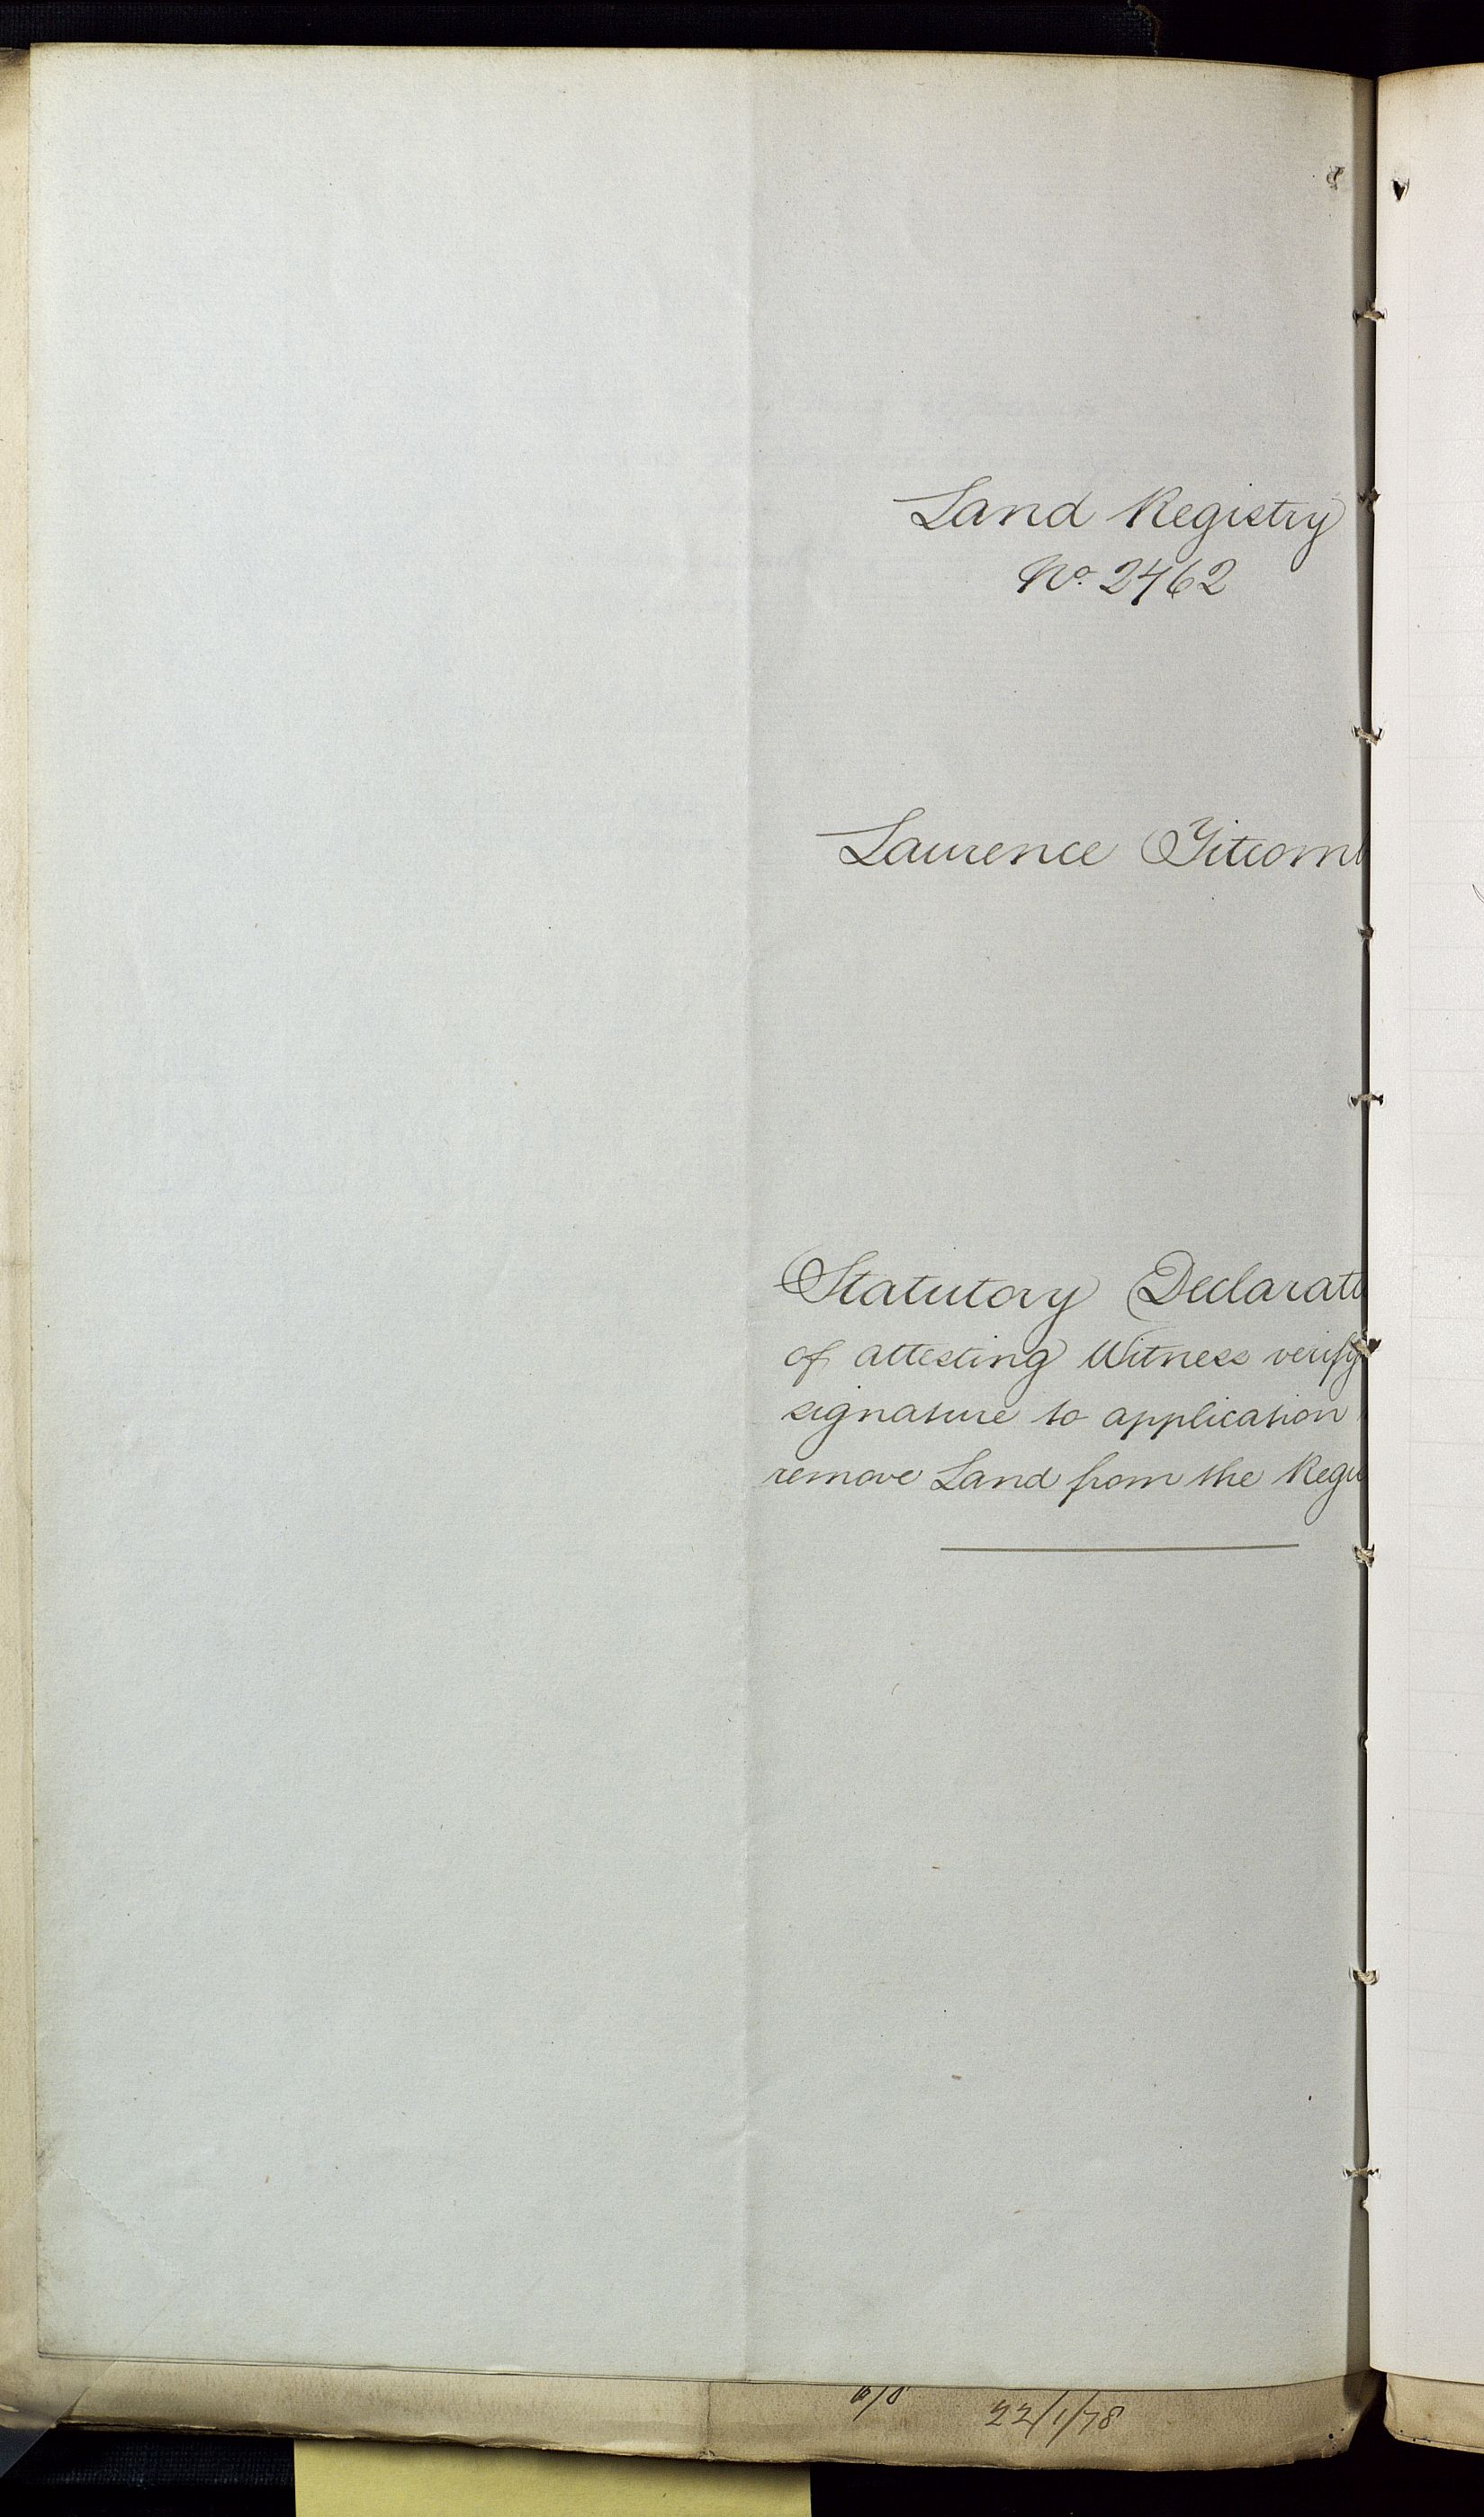 Land Registry
No. 2462
Laurence Titcom
Statutory Declarat
of attesting Witness verify
signature to application
remove Land from the Regis
22/1/78